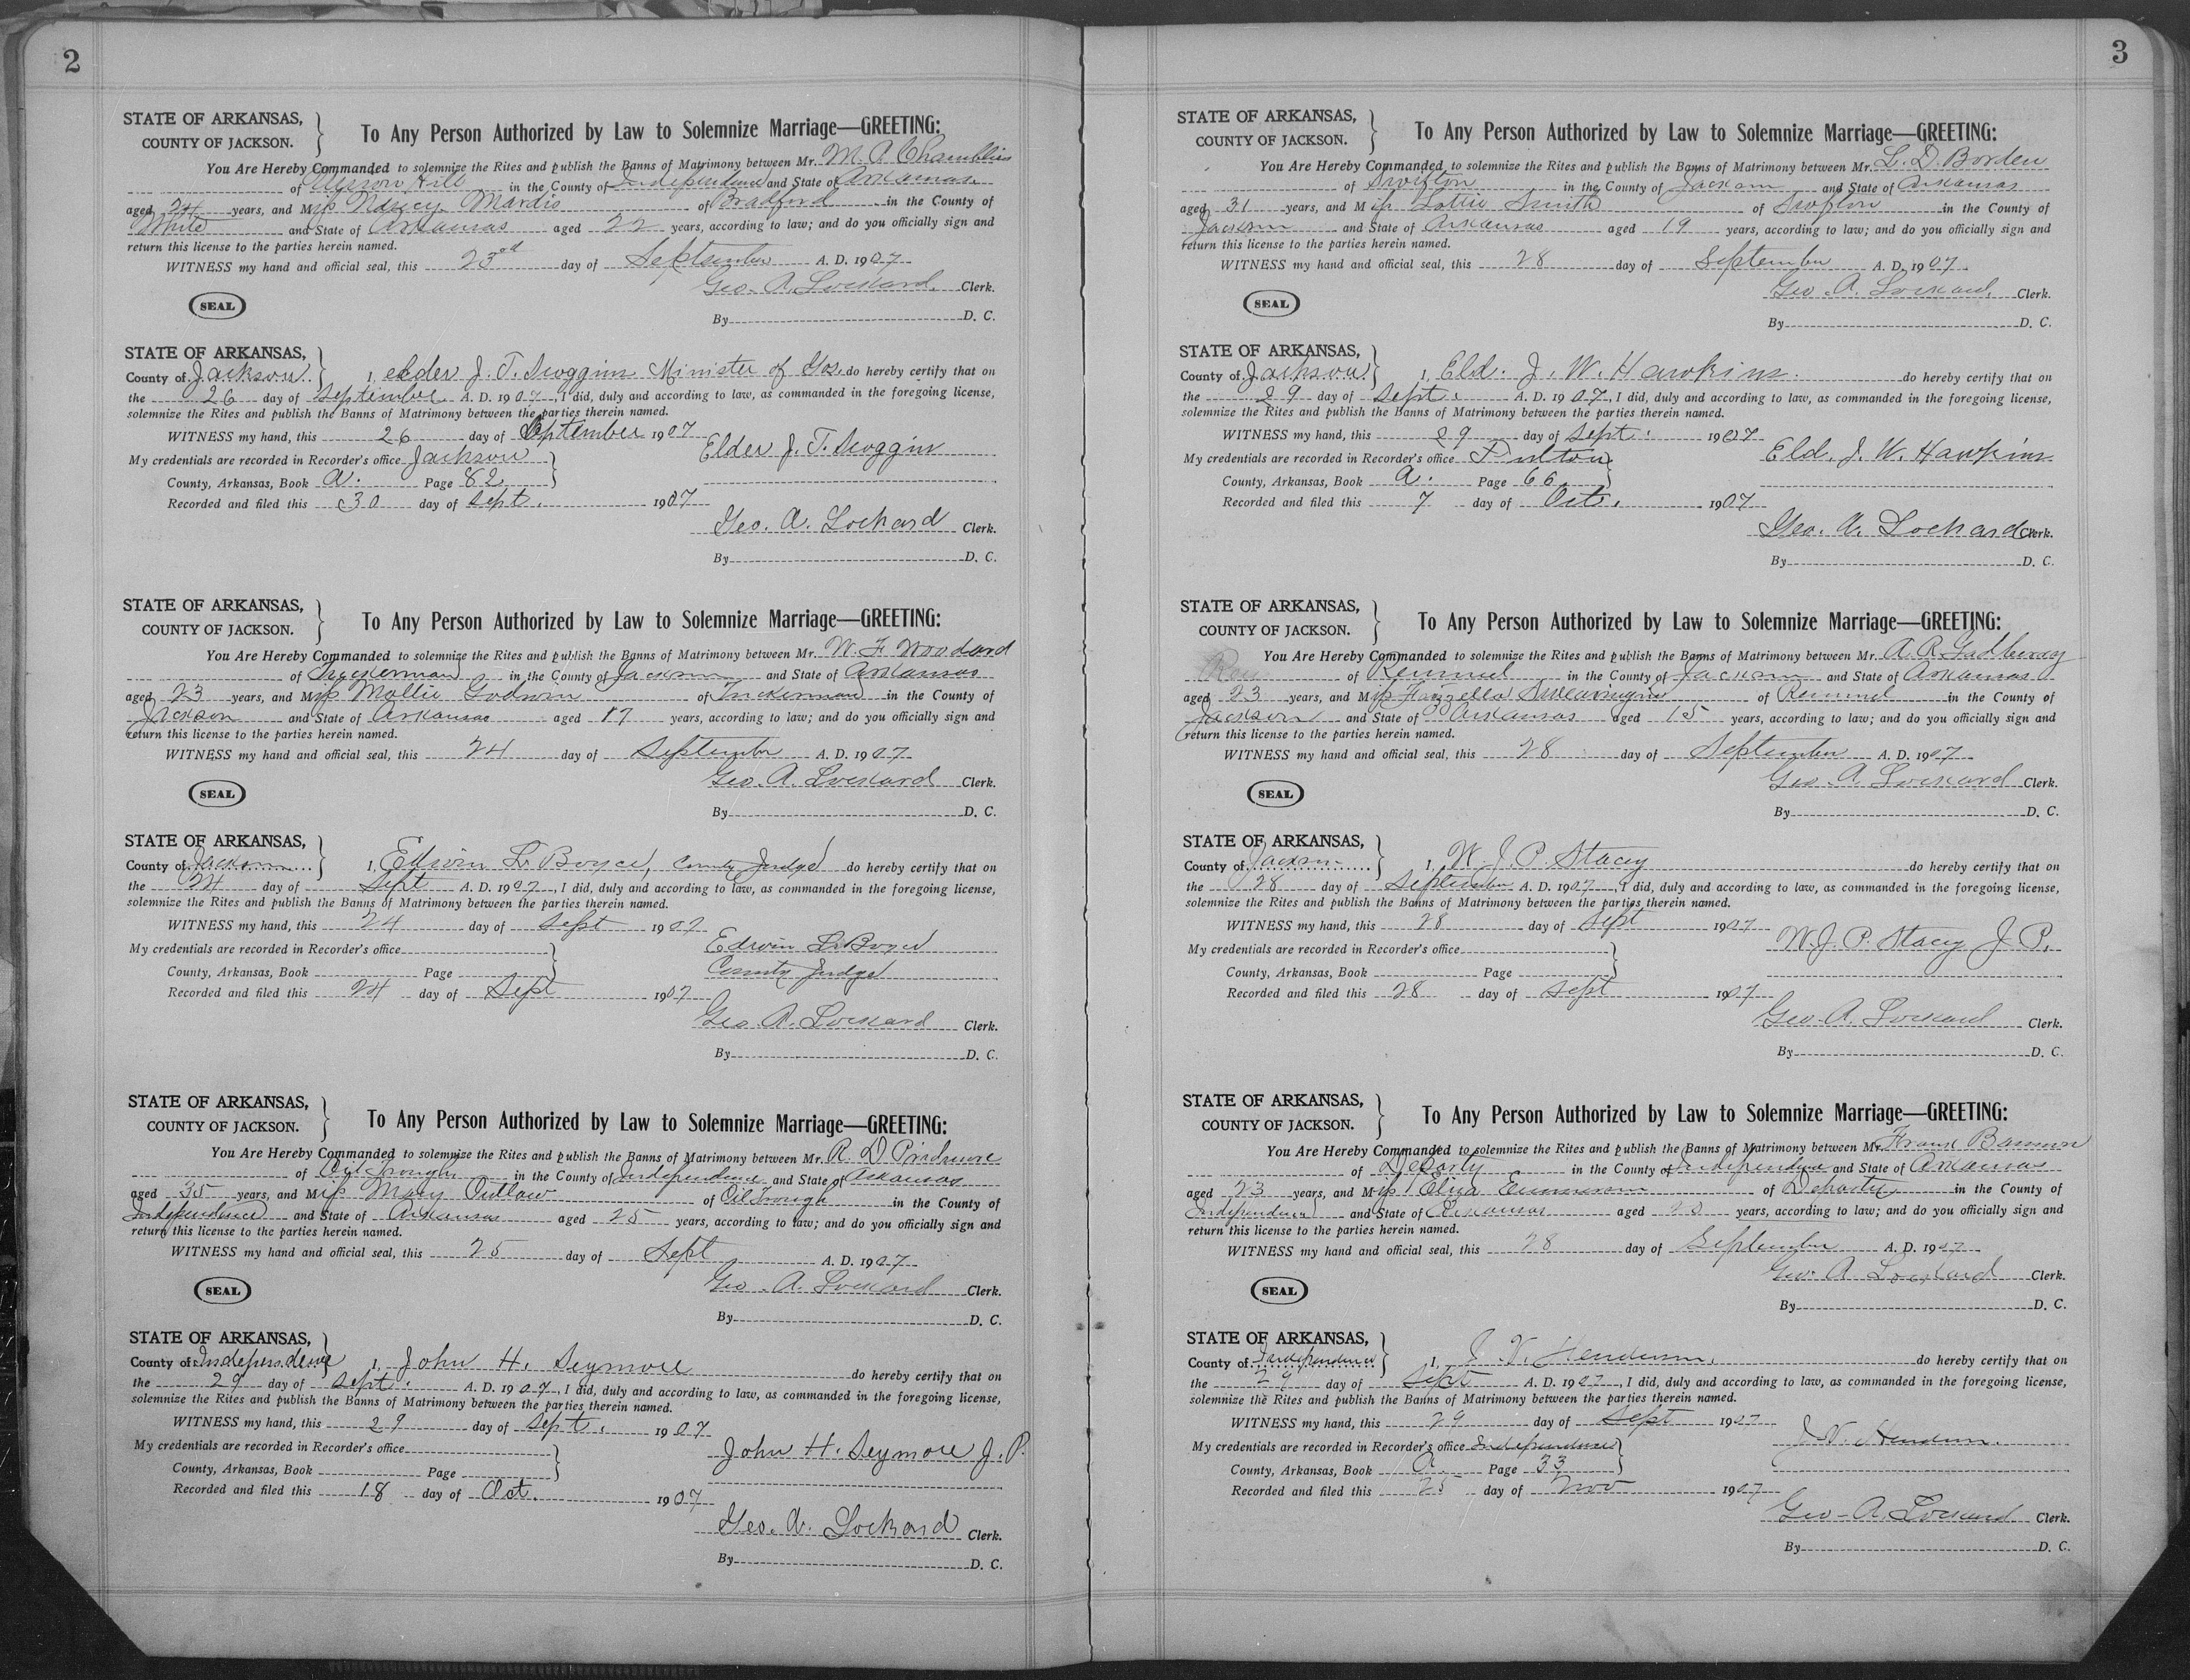 2
STATE OF ARKANSAS,
COUNTY OF JACKSON.
To Any Person Authorized by Law to Solemnize Marriage—GREETING:
You Are Hereby Commanded to solemnize the Rites and publish the Banns of Matrimony between Mr. M. A. Chamblin
of Hill in the County of Independence and State of Arkansas
aged 24 years, and Miss Nancy Mardis of Bradford in the County of
White and State of Arkansas aged 22 years, according to law; and do you officially sign and
return this license to the parties herein named.
WITNESS my hand and official seal, this 23rd day of September A. D. 1907
Geo. A. Lockard Clerk.
SEAL
By D. C.
STATE OF ARKANSAS,
County of Jackson I, elder J. T. Scoggin Minister of Gos. do hereby certify that on
the 26 day of September A. D. 1907, I did, duly and according to law, as commanded in the foregoing license,
solemnize the Rites and publish the Banns of Matrimony between the parties therein named.
WITNESS my hand, this 26 day of September 1907
Elder J. T. Scoggin
My credentials are recorded in Recorder's office Jackson
County, Arkansas, Book A. Page 82
Recorded and filed this 30 day of Sept. 1907
Geo. A. Lockard Clerk.
By D. C.
STATE OF ARKANSAS,
COUNTY OF JACKSON.
To Any Person Authorized by Law to Solemnize Marriage—GREETING:
You Are Hereby Commanded to solemnize the Rites and publish the Banns of Matrimony between Mr. W. F. Woodard
of Tuckerman in the County of Jackson and State of Arkansas
aged 23 years, and Miss Mollie Godwin of Tuckerman in the County of
Jackson and State of Arkansas aged 17 years, according to law; and do you officially sign and
return this license to the parties herein named.
WITNESS my hand and official seal, this 24 day of September A. D. 1907
Geo. A. Lockard Clerk.
SEAL
By D. C.
STATE OF ARKANSAS,
County of Jackson I, Edwin L. Boyce, County Judge do hereby certify that on
the 24 day of Sept A. D. 1907, I did, duly and according to law, as commanded in the foregoing license,
solemnize the Rites and publish the Banns of Matrimony between the parties therein named.
WITNESS my hand, this 24 day of Sept 1907
Edwin L. Boyce
My credentials are recorded in Recorder's office
County Judge
County, Arkansas, Book Page
Recorded and filed this 24 day of Sept 1907
Geo. A. Lockard Clerk.
By D. C.
STATE OF ARKANSAS,
COUNTY OF JACKSON.
To Any Person Authorized by Law to Solemnize Marriage—GREETING:
You Are Hereby Commanded to solemnize the Rites and publish the Banns of Matrimony between Mr. R. D. Pridmore
of Oil Trough in the County of Independence and State of Arkansas
aged 35 years, and Miss Mary Outlaw of Oil Trough in the County of
Independence and State of Arkansas aged 25 years, according to law; and do you officially sign and
return this license to the parties herein named.
WITNESS my hand and official seal, this 25 day of Sept A. D. 1907
Geo. A. Lockard Clerk.
SEAL
By D. C.
STATE OF ARKANSAS,
County of Independence I, John H. Seymore do hereby certify that on
the 29 day of Sept. A. D. 1907, I did, duly and according to law, as commanded in the foregoing license,
solemnize the Rites and publish the Banns of Matrimony between the parties therein named.
WITNESS my hand, this 29 day of Sept. 1907
John H. Seymore J. P.
My credentials are recorded in Recorder's office
County, Arkansas, Book Page
Recorded and filed this 18 day of Oct. 1907
Geo. A. Lockard Clerk.
By D. C.
3
STATE OF ARKANSAS,
COUNTY OF JACKSON.
To Any Person Authorized by Law to Solemnize Marriage—GREETING:
You Are Hereby Commanded to solemnize the Rites and publish the Banns of Matrimony between Mr. L. D. Borden
of Swifton in the County of Jackson and State of Arkansas
aged 31 years, and Miss Lottie Smith of Swifton in the County of
Jackson and State of Arkansas aged 19 years, according to law; and do you officially sign and
return this license to the parties herein named.
WITNESS my hand and official seal, this 28 day of September A. D. 1907
Geo. A. Lockard Clerk.
SEAL
By D. C.
STATE OF ARKANSAS,
County of Jackson I, Eld. J. W. Hawkins. do hereby certify that on
the 29 day of Sept. A. D. 1907, I did, duly and according to law, as commanded in the foregoing license,
solemnize the Rites and publish the Banns of Matrimony between the parties therein named.
WITNESS my hand, this 29 day of Sept. 1907
Eld. J. W. Hawkins
My credentials are recorded in Recorder's office Fulton
County, Arkansas, Book A. Page 66
Recorded and filed this 7 day of Oct. 1907
Geo. A. Lockard Clerk.
By D. C.
STATE OF ARKANSAS,
COUNTY OF JACKSON.
To Any Person Authorized by Law to Solemnize Marriage—GREETING:
You Are Hereby Commanded to solemnize the Rites and publish the Banns of Matrimony between Mr. A. R. Gadberry
of Remmel in the County of Jackson and State of Arkansas
aged 23 years, and Miss of Remmel in the County of
Jackson and State of Arkansas aged 15 years, according to law; and do you officially sign and
return this license to the parties herein named.
WITNESS my hand and official seal, this 28 day of September A. D. 1907
Geo. A. Lockard Clerk.
SEAL
By D. C.
STATE OF ARKANSAS,
County of Jackson I, W. J. P. Stacey do hereby certify that on
the 28 day of September A. D. 1907, I did, duly and according to law, as commanded in the foregoing license,
solemnize the Rites and publish the Banns of Matrimony between the parties therein named.
WITNESS my hand, this 28 day of Sept 1907
W. J. P. Stacey J. P.
My credentials are recorded in Recorder's office
County, Arkansas, Book Page
Recorded and filed this 28 day of Sept 1907
Geo. A. Lockard Clerk.
By D. C.
STATE OF ARKANSAS,
COUNTY OF JACKSON.
To Any Person Authorized by Law to Solemnize Marriage—GREETING:
You Are Hereby Commanded to solemnize the Rites and publish the Banns of Matrimony between Mr. Frank
of in the County of Independence and State of Arkansas
aged 23 years, and Miss Eliza of in the County of
Independence and State of Arkansas aged years, according to law; and do you officially sign and
return this license to the parties herein named.
WITNESS my hand and official seal, this 28 day of September A. D. 1907
Geo. A. Lockard Clerk.
SEAL
By D. C.
STATE OF ARKANSAS,
County of Independence I, J. V. Henderson. do hereby certify that on
the 29 day of Sept A. D. 1907, I did, duly and according to law, as commanded in the foregoing license,
solemnize the Rites and publish the Banns of Matrimony between the parties therein named.
WITNESS my hand, this 29 day of Sept 1907
J. V. Henderson.
My credentials are recorded in Recorder's office Independence
County, Arkansas, Book A. Page 33
Recorded and filed this 25 day of Nov 1907
Geo. A. Lockard Clerk.
By D. C.